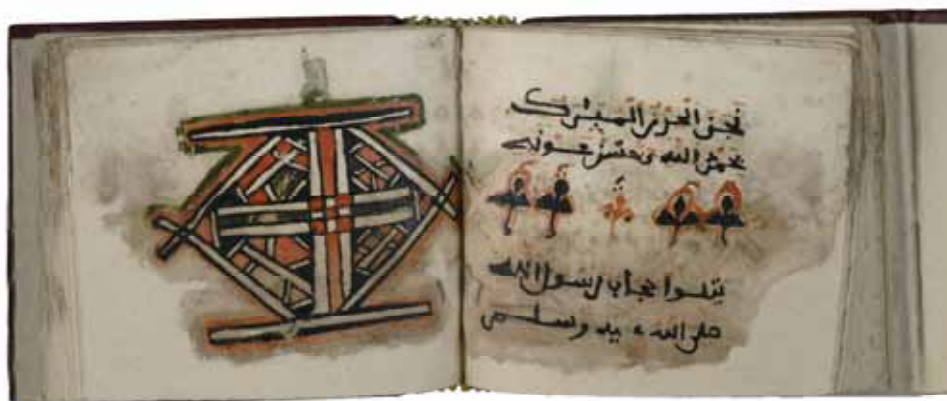 نجز الحرز المبٰرك
بحمد الله وحسن عونه
يتلوا حجاب رسول الله
صلى الله عليه وسلم